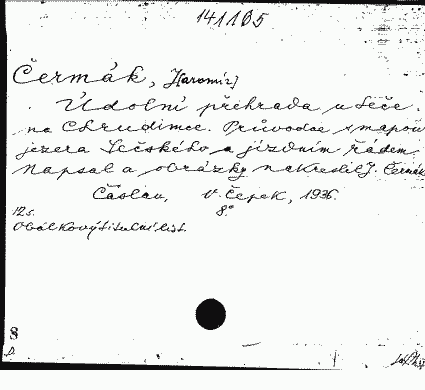 141105
Čermák, J[aromír]
Údolní přehrada u Seče
na Chrudimce. Průvodce s mapou
jezera Sečského a jízdním řádem
Napsal a obrázky nakreslil J. Čermák
Čáslav, V. Čepek, 1936.
12 s. 8°
Obálkový titulní list.